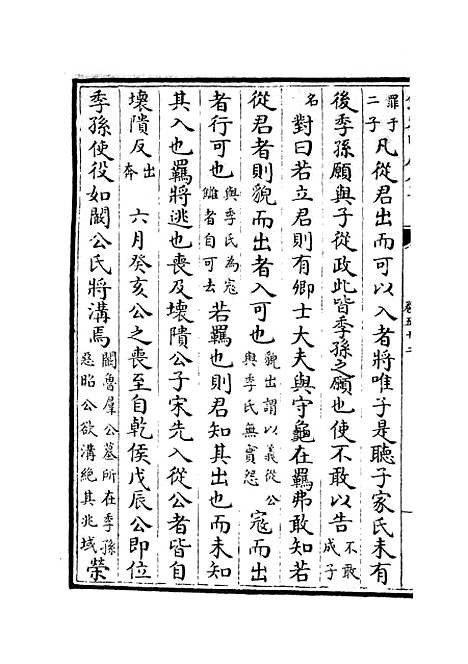 卷五十二
罪于二子凡從君出而可以入者將唯子是聽子家氏未有
後季孫願與子從政此皆季孫之願也使不敢以告不敢成子
名對曰若立君則有卿士大夫與守龜在羈弗敢知若
從君者則貌而出者入可也貌出謂以義從公與季氏無實怨寇而出
者行可也與季氏為寇讎者自可去若羈也則君知其出也而未知
其入也羈將逃也喪及壞隤公子宋先入從公者皆自
壞隤反出奔 六月癸亥公之喪至自乾侯戊辰公即位
季孫使役如闞公氏將溝焉闞魯羣公墓所在季孫惡昭公欲溝絕其兆域榮